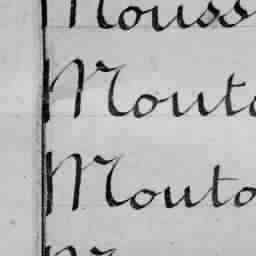 Mouss
Mouto
Mouto